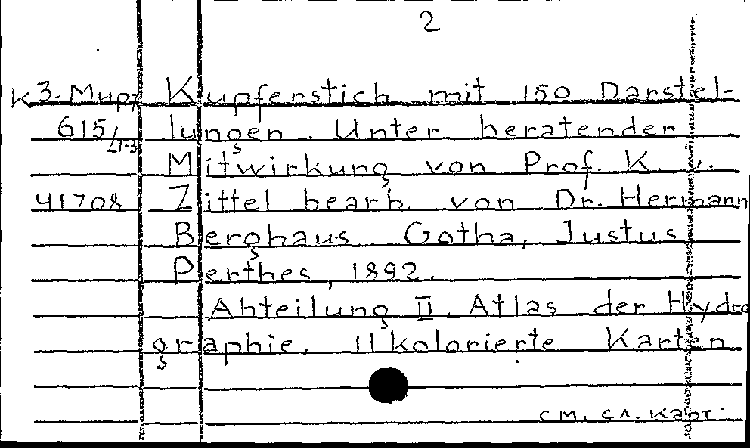 2
K3-Mupf Kupferstich mit 150 Darstel-
615/ lungen. Unter beratender
Mitwirkung von Prof. K. v.
41708 Zittel bearb. von Dr. Hermann
Berghaus Gotha, Justus
Perthes, 1892.
Abteilung II. Atlas der Hydro
graphie. 11 kolorierte Karten
см. сл. карт.